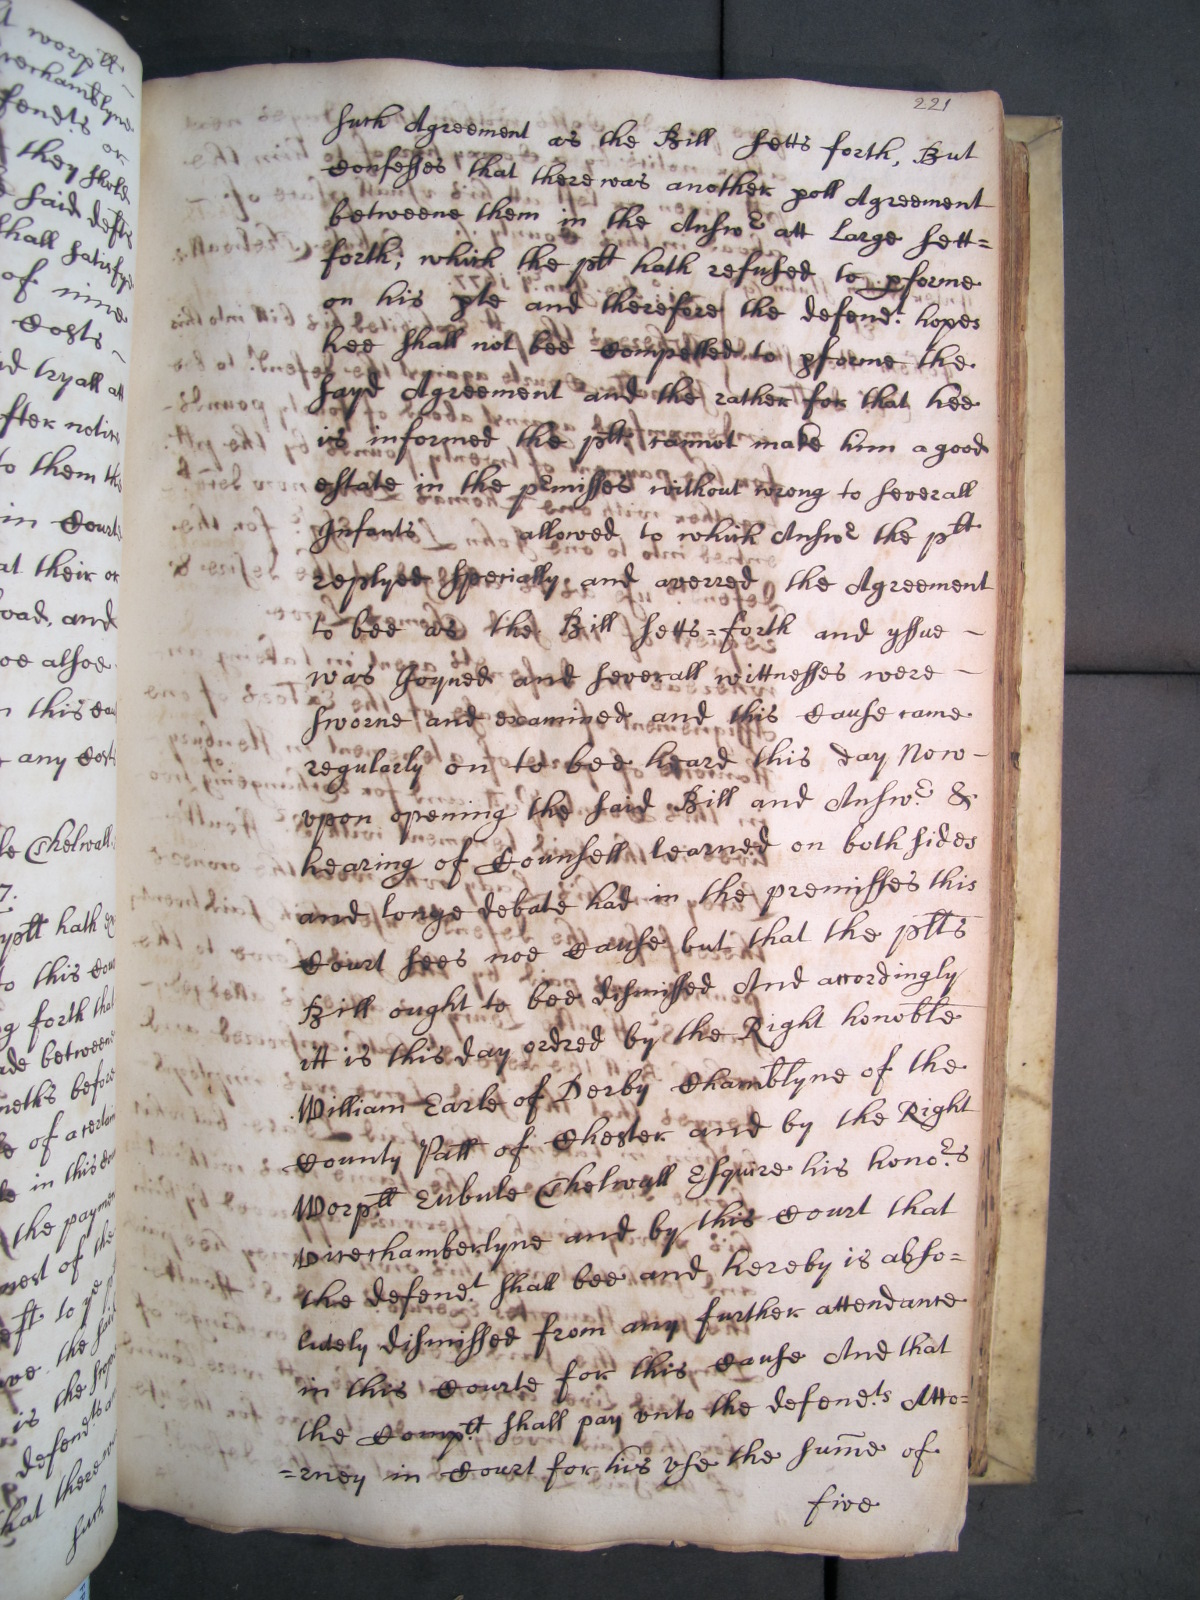 221
such Agreement as the Bill setts forth, But
Confesses that there was another poll Agreement
betweene them in the Answr att Large sett=
forth; which the pltt hath refused to pforme
on his pte and therefore the defendt. hopes
hee shall not bee Compelled to pforme the
sayd Agreement and the rather for that hee
is informed the pltt cannot make him a good
estate in the prmisses without wrong to severall
Infants allowed, to which Answr the pltt
replyed specially and averred the Agreement
to bee as the Bill setts=forth and yssue -
was Joyned and severall wittnesses were -
sworne and examined and this Cause came
regularly on to bee heard this day Now-
vpon opening the said Bill and Answr. &
hearing of Counsell learned on both sides
and longe debate had in the premisses this
Court sees noe Cause but that the pltts
Bill ought to bee dismissed And accordingly
itt is this day ordred by the Right honoble
William Earle of Derby Chamblyne of the
County Pall of Chester and by the Right
Worpll Eubule Thelwall Esquire his honors
vicechamberlyne and by this Court that
the defendt. shall bee and hereby is abso=
lutely dismissed from any further attendance
in this Courte for this Cause And that
the Compltt shall pay vnto the defendts Atto=
=rney in Court for his vse the sum̅e of
five